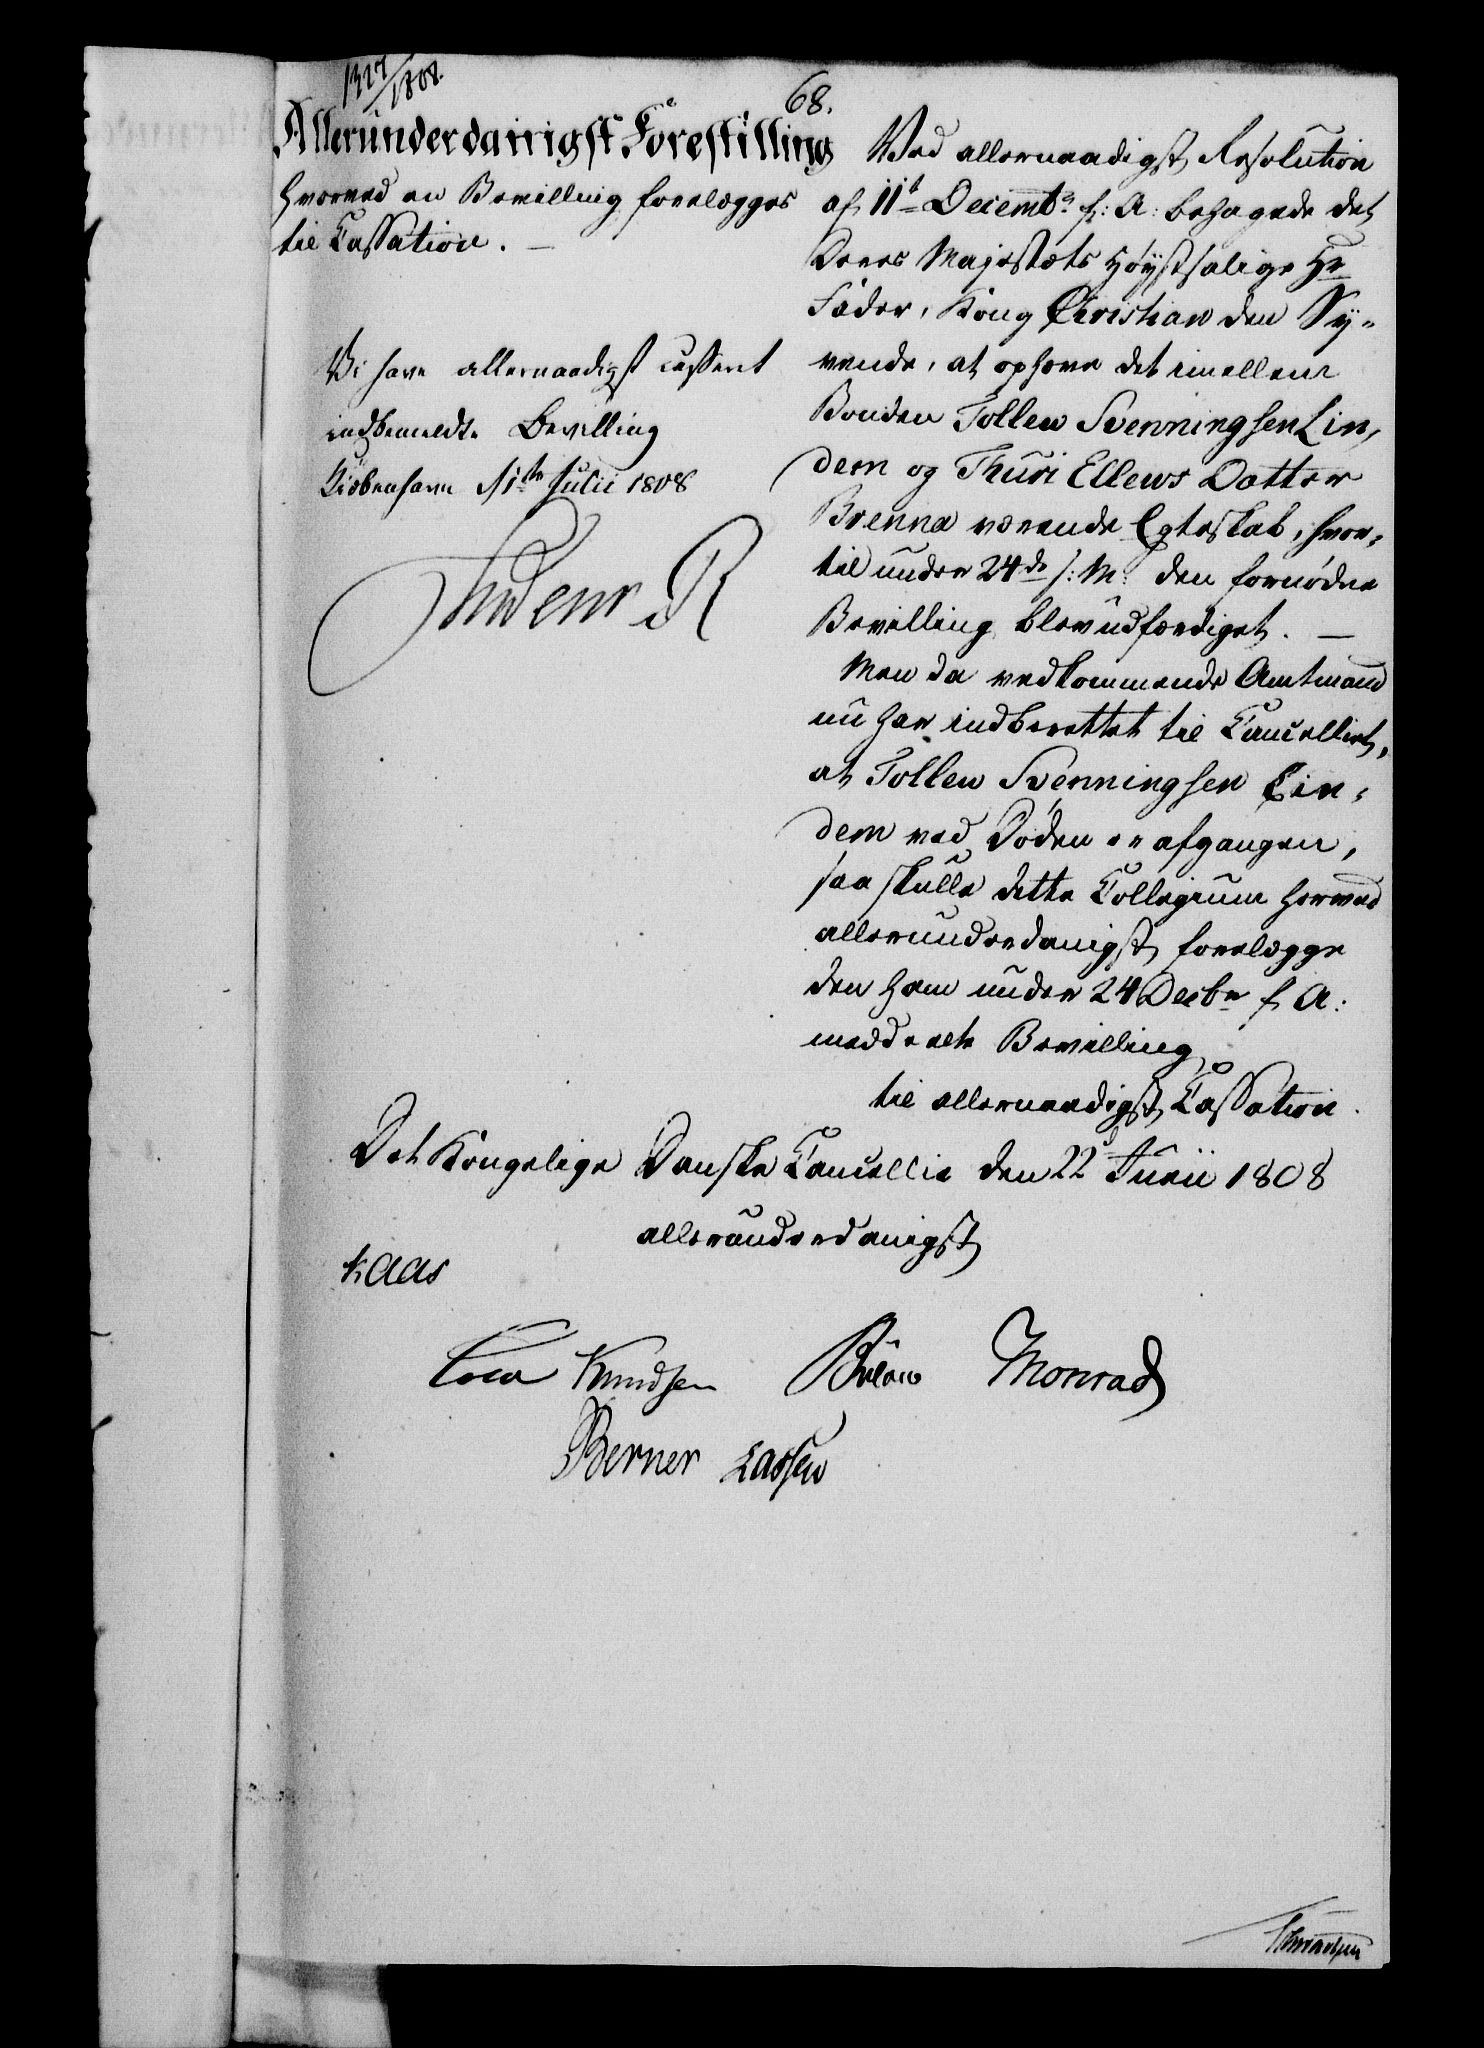 1327/1808.
68.
Allerunderdanigst Forestilling
hvorved en Bevilling forelægges
til Cassation. —
Vi have allernaadigst casseret
indbemeldte Bevilling
Kiöbenhavn d 1ste Julii 1808
Frideric R
Ved allernaadigst Resolution
af 11t Decembr f: A: behagede det
Deres Majestæts Høystsalige Hr
Fader, Kong Christian den Sy-
vende, at ophæve det imellem
Bonden Tollew Svenningsen Lin-
dem og Thuri Ellews Datter
Brenna værende Egteskab, hvor-
til under 24de s: M: den fornødne
Bevilling blev udfærdiget. —
Men da vedkommende Amtmand
nu har indberettet til Cancelliet,
at Tollew Svenningsen Lin-
dem ved Døden er afgangen,
saa skulle dette Collegium herved
allerunderdanigst forelægge
den ham under 24 Decbr f. A:
meddeelte Bevilling
til allernaadigst Cassation.
Det Kongelige Danske Cancellie den 22d Junii 1808
allerunderdanigst
Kaas
Cold Knudsen Bülow Monrad
Berner Lassen